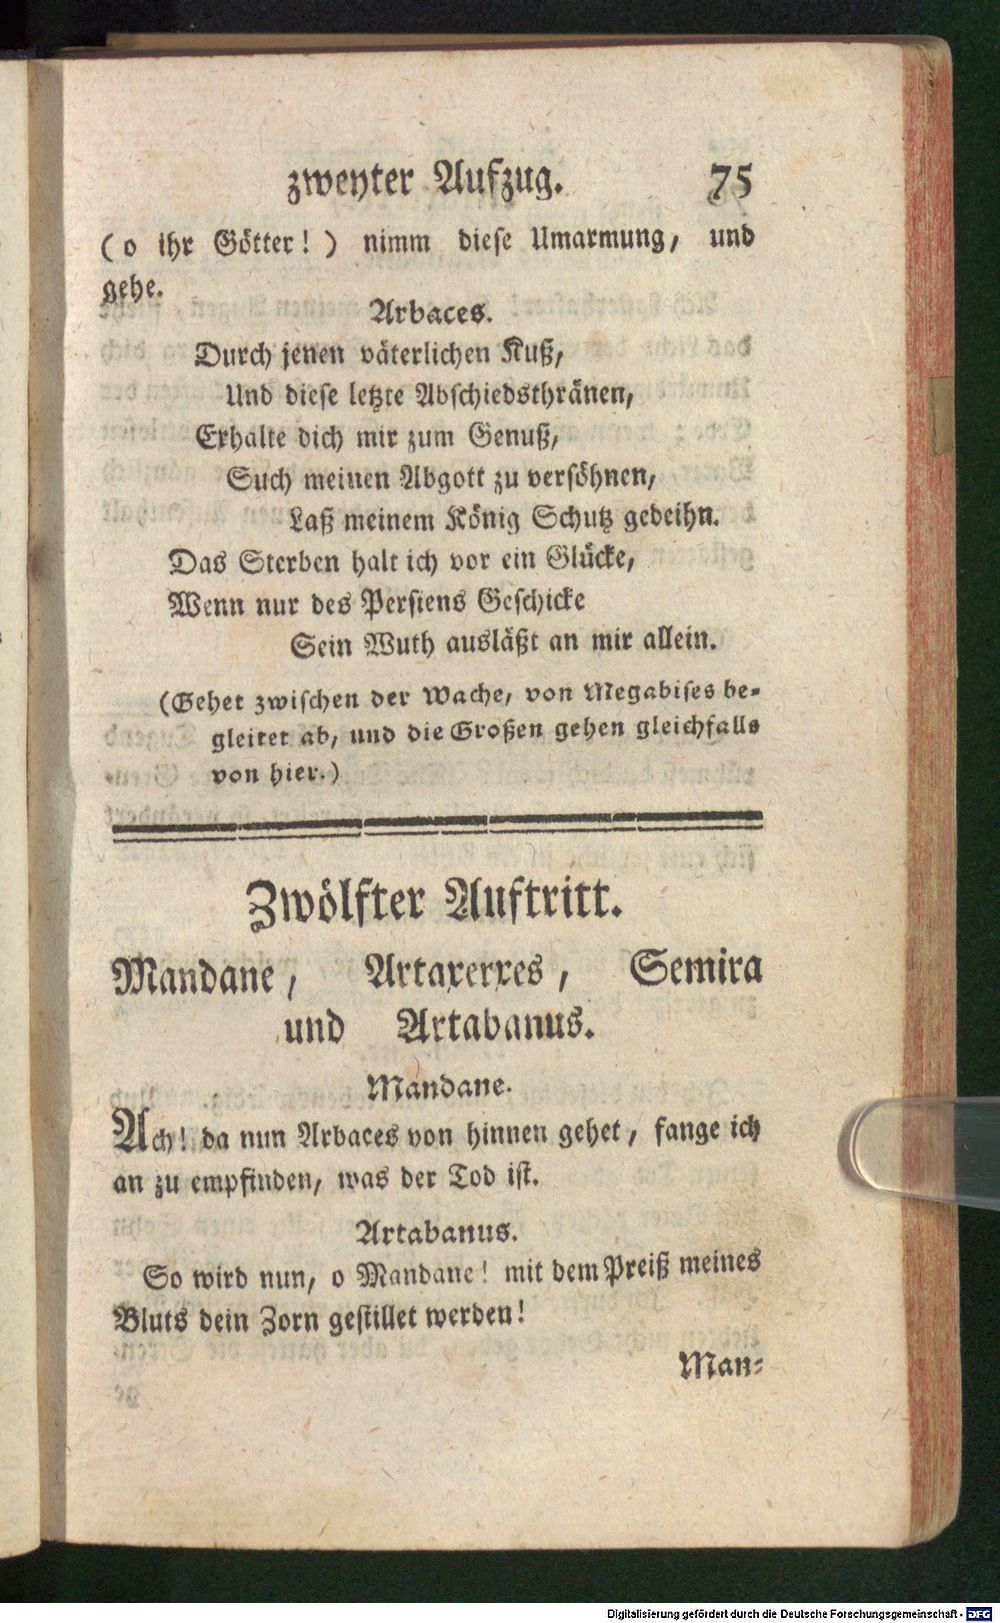 zweyter Aufzug. 75
(o ihr Götter!) nimm diese Umarmung, und
gehe.
Arbaces.
Durch jenen väterlichen Kuß,
Und diese letzte Abschiedsthränen,
Erhalte dich mir zum Genuß,
Such meinen Abgott zu versöhnen,
Laß meinem König Schutz gedeihn.
Das Sterben halt ich vor ein Glücke,
Wenn nur des Persiens Geschicke
Sein Wuth ausläßt an mir allein.
(Gehet zwischen der Wache, von Megabises be-
gleitet ab, und die Großen gehen gleichfalls
von hier.)
Zwölfter Auftritt.
Mandane, Artaxerxes, Semira
und Artabanus.
Mandane.
Ach! da nun Arbaces von hinnen gehet, fange ich
an zu empfinden, was der Tod ist.
Artabanus.
So wird nun, o Mandane! mit dem Preiß meines
Bluts dein Zorn gestillet werden!
Man-
Digitalisierung gefördert durch die Deutsche Forschungsgemeinschaft - DFG